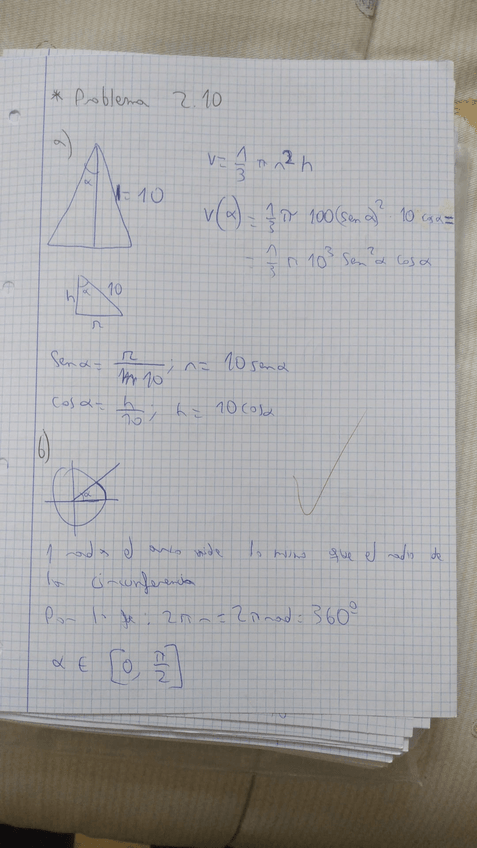 * Problema 2.10
a)
α
l = 10
V = 1/3 π r² h
V(α) = 1/3 π 100 (sen α)² · 10 cos α =
= 1/3 π 10³ sen² α cos α
h α 10
r
Sen α = r/10 ; r = 10 sen α
Cos α = h/10 ; h = 10 cos α
b)
α
1 radan el arco mide lo mismo que el radio de
la circunferencia
Por lo : 2πr = 2π rad = 360º
α ∈ [0, π/2]